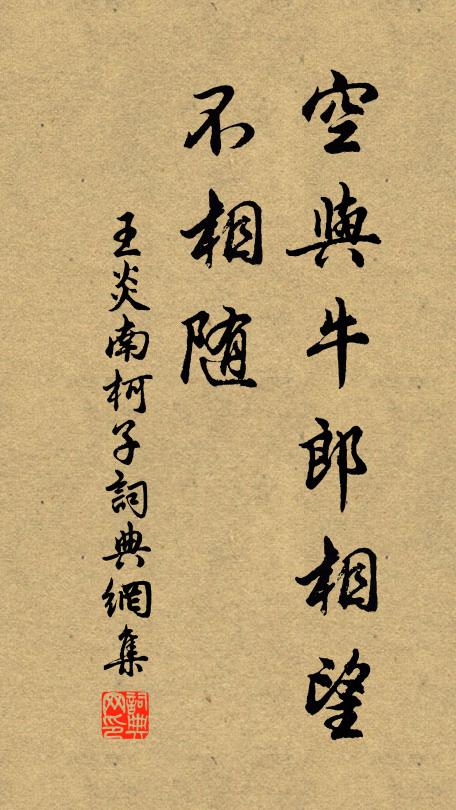 空與牛郎相望
不相随
王炎南柯子詞典網集
詞典网印